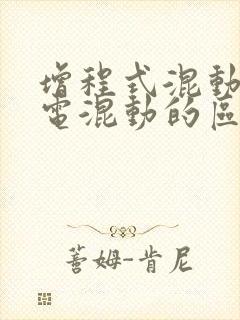 增程式混動
電混動的區
蒈姆-肯尼